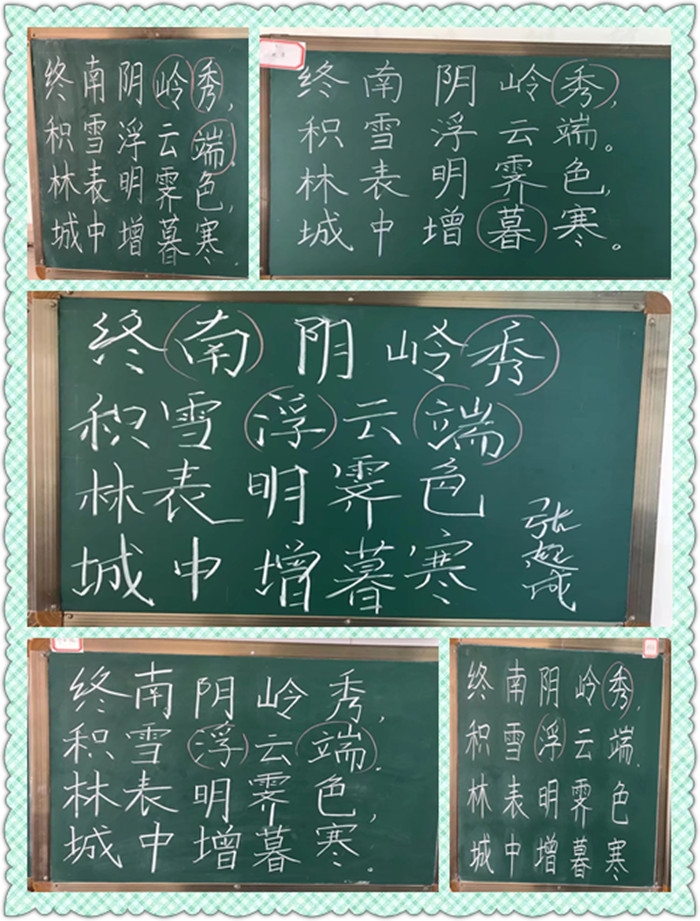 终南阴岭秀，
积雪浮云端。
林表明霁色，
城中增暮寒。
终南阴岭秀，
积雪浮云端。
林表明霁色，
城中增暮寒。
终南阴岭秀
积雪浮云端
林表明霁色
城中增暮寒
终南阴岭秀，
积雪浮云端。
林表明霁色，
城中增暮寒。
终南阴岭秀，
积雪浮云端.
林表明霁色
城中增暮寒